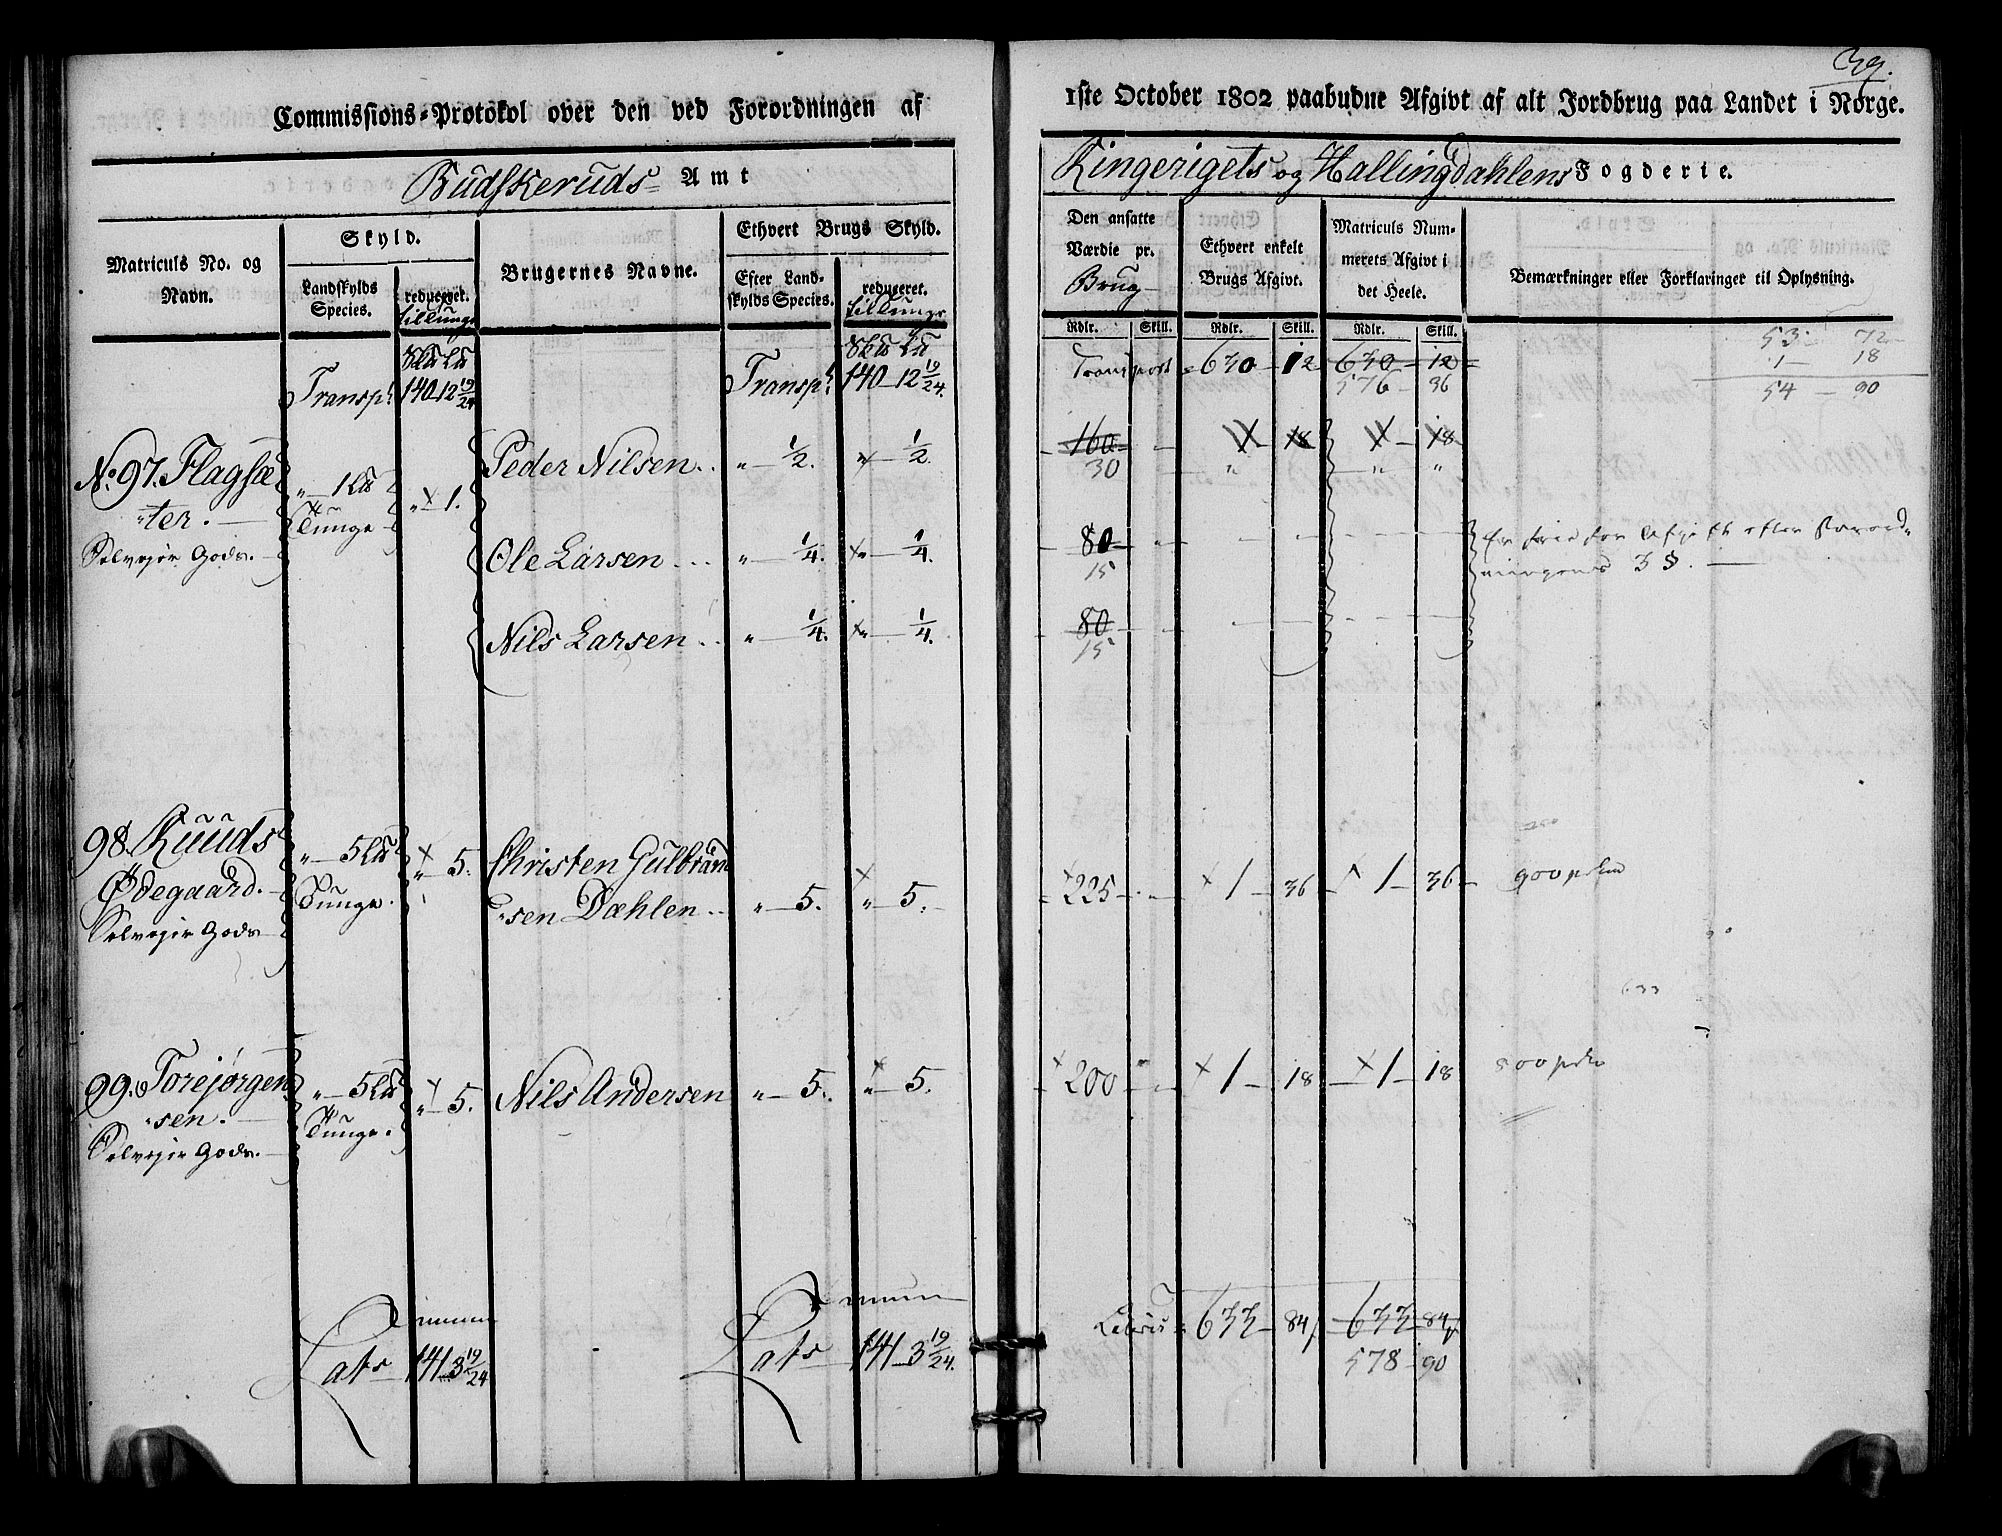 39.
Commissions-Protokol over den ved Forordningen af
1ste October 1802 paabudne Afgivt af alt Jordbrug paa Landet i Norge.
Budskeruds Amt
Ringerigets og Hallingdahlens Fogderie.
Matriculs No. og Navn.
Skyld.
Landskylds Species.
reduceret. til Tunge
Brugernes Navne.
Ethvert Brugs Skyld.
Efter Landskylds Species.
reduceret. til Tunge
Den ansatte Værdie pr. Brug
Ethvert enkelt Brugs Afgivt.
Matriculs Nummerets Afgivt i det Heele.
Bemærkninger eller Forklaringer til Oplysning.
Rdlr. Skill. Rdlr. Skill. Rdlr. Skill.
Sk℔ L℔ Sk℔ L℔
Transpt. 140 12 19/24 Transpt. 140 - 12 19/24. Transport 630 - 12 630 - 12
576 - 36
53 72
1 - 18
54 - 90
No. 97. Flagsæ
ter.
Selveyer Gods.
" - 1 L℔
Tunge
" - 1.
Peder Nilsen.. " - 1/2. " - 1/2. 160 18 18
30 " " " "
Ole Larsen... " - 1/4. " - 1/4. 80
15
Er frie for Afgift efter Forord-
ningens 3 §.
Nils Larsen.. " - 1/4. " - 1/4. 80
15
98. Ruuds
Ødegaard.
Selveyer Gods
" - 5 L℔
Tunge.
" - 5.
Christen Gulbrand
sen Dæhlen.. " - 5. " - 5. 225 1 - 36 1 - 36 900
633
99. Torejørgen
sen.
Selveyer Gods.
" - 5 L℔
Tunge.
" - 5.
Nils Andersen " - 5. " - 5. 200 1 - 18 1 - 18 800
Lats 141 3 19/24 Lats 141 - 3 19/24. 633 - 84 633 - 84
578 - 90